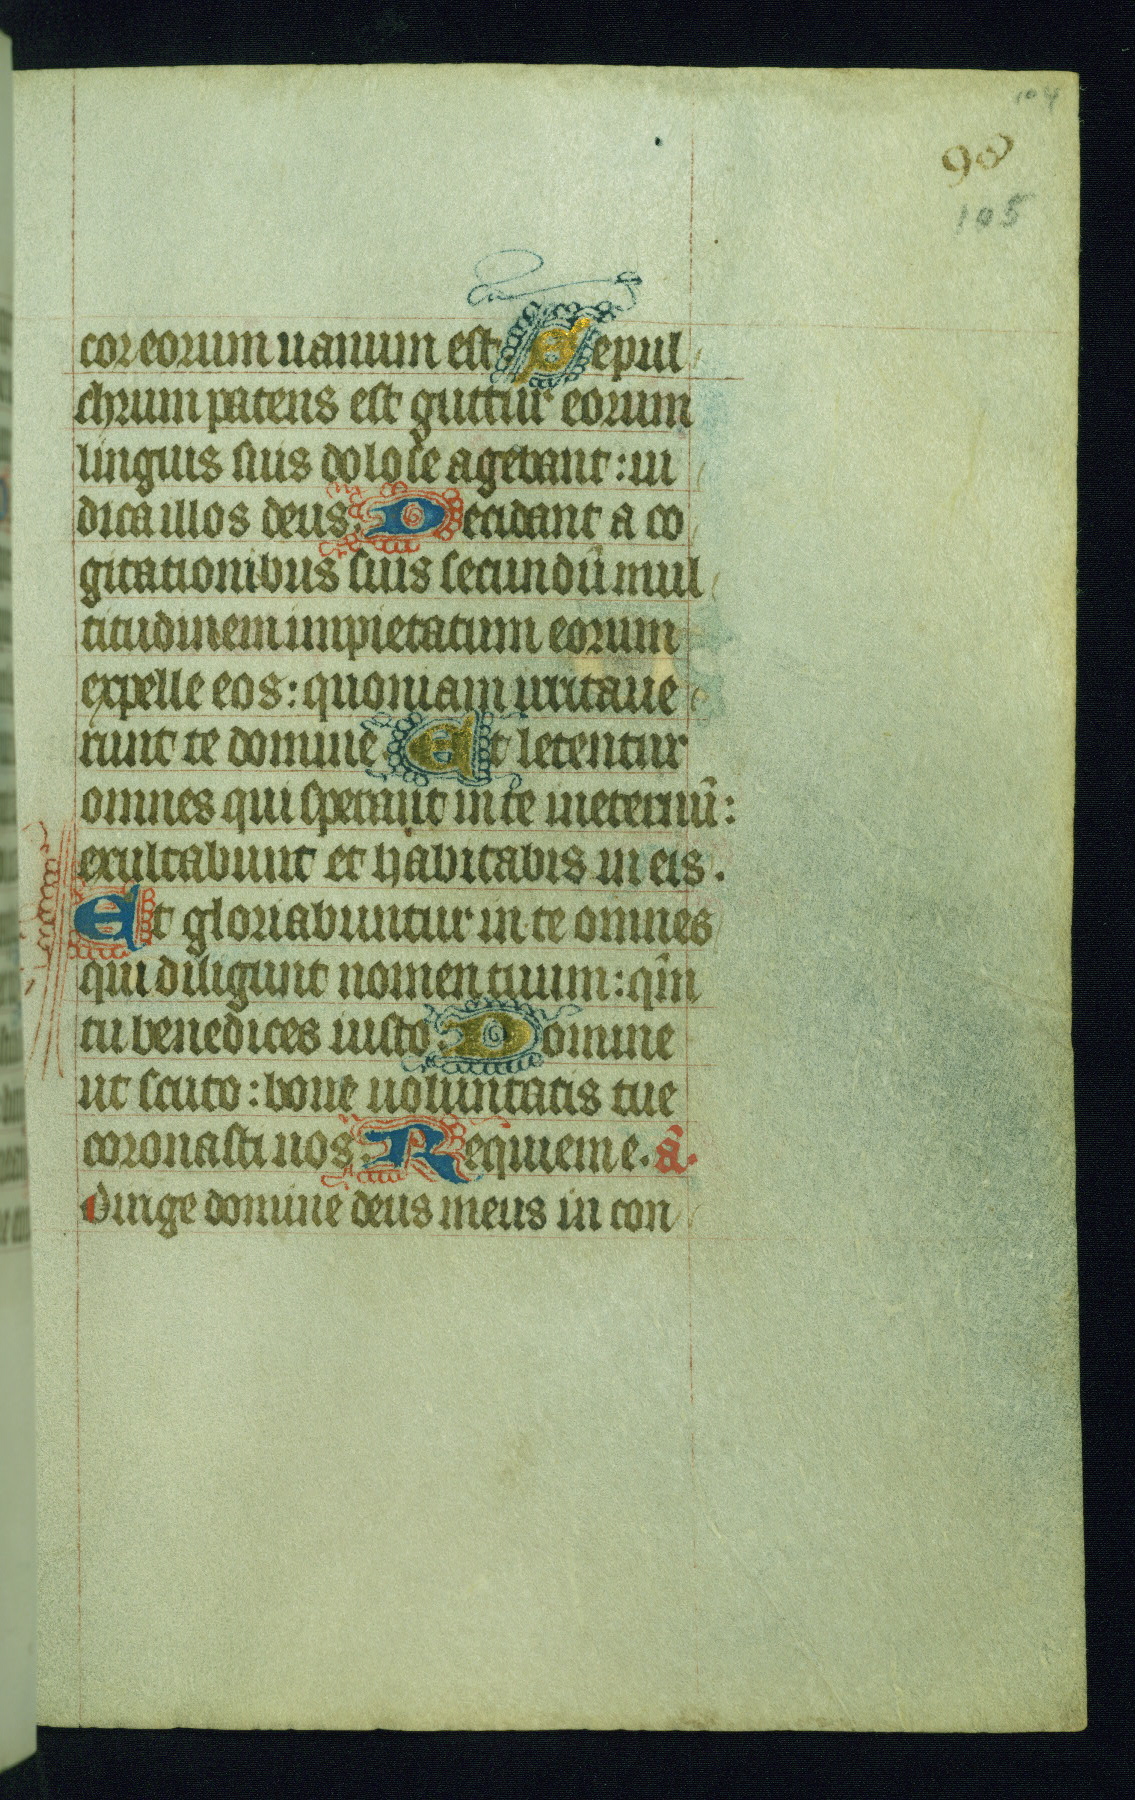 104
98
105
cor eorum uanum est. Sepul
chrum patens est guttur eorum
linguis suis dolose agebant: iu
dica illos deus. Decidant a co
gitationibus suis secundū mul
titudinem impietatum eorum
expelle eos: quoniam irritaue
runt te domine. Et letentur
omnes qui sperant in te ineternū:
exultabunt et habitabis in eis.
Et gloriabuntur in te omnes
qui diligunt nomen tuum: qm̄
tu benedices iusto. Domine
ut scuto: bone uoluntatis tue
coronasti nos. Requiem e. a̅.
Dirige domine deus meus in con